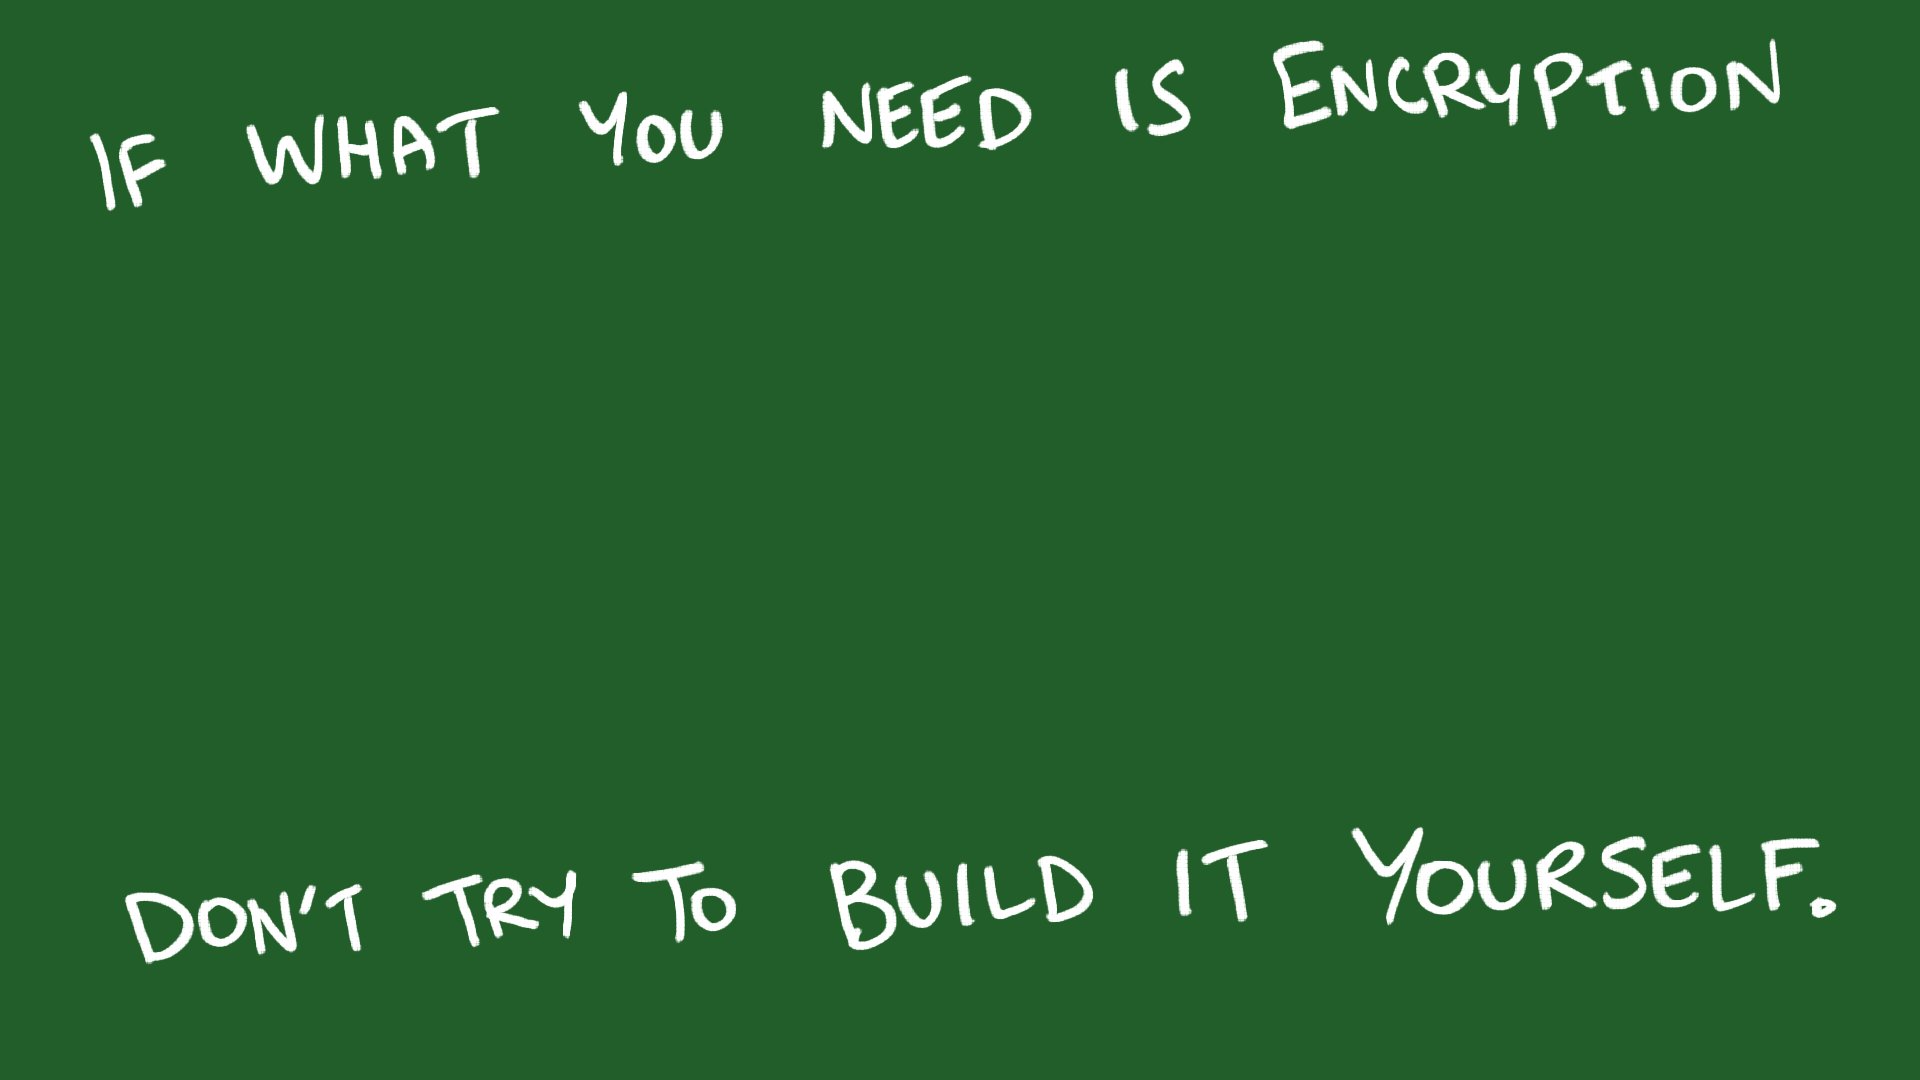 IF WHAT YOU NEED IS ENCRYPTION
DON'T TRY TO BUILD IT YOURSELF.